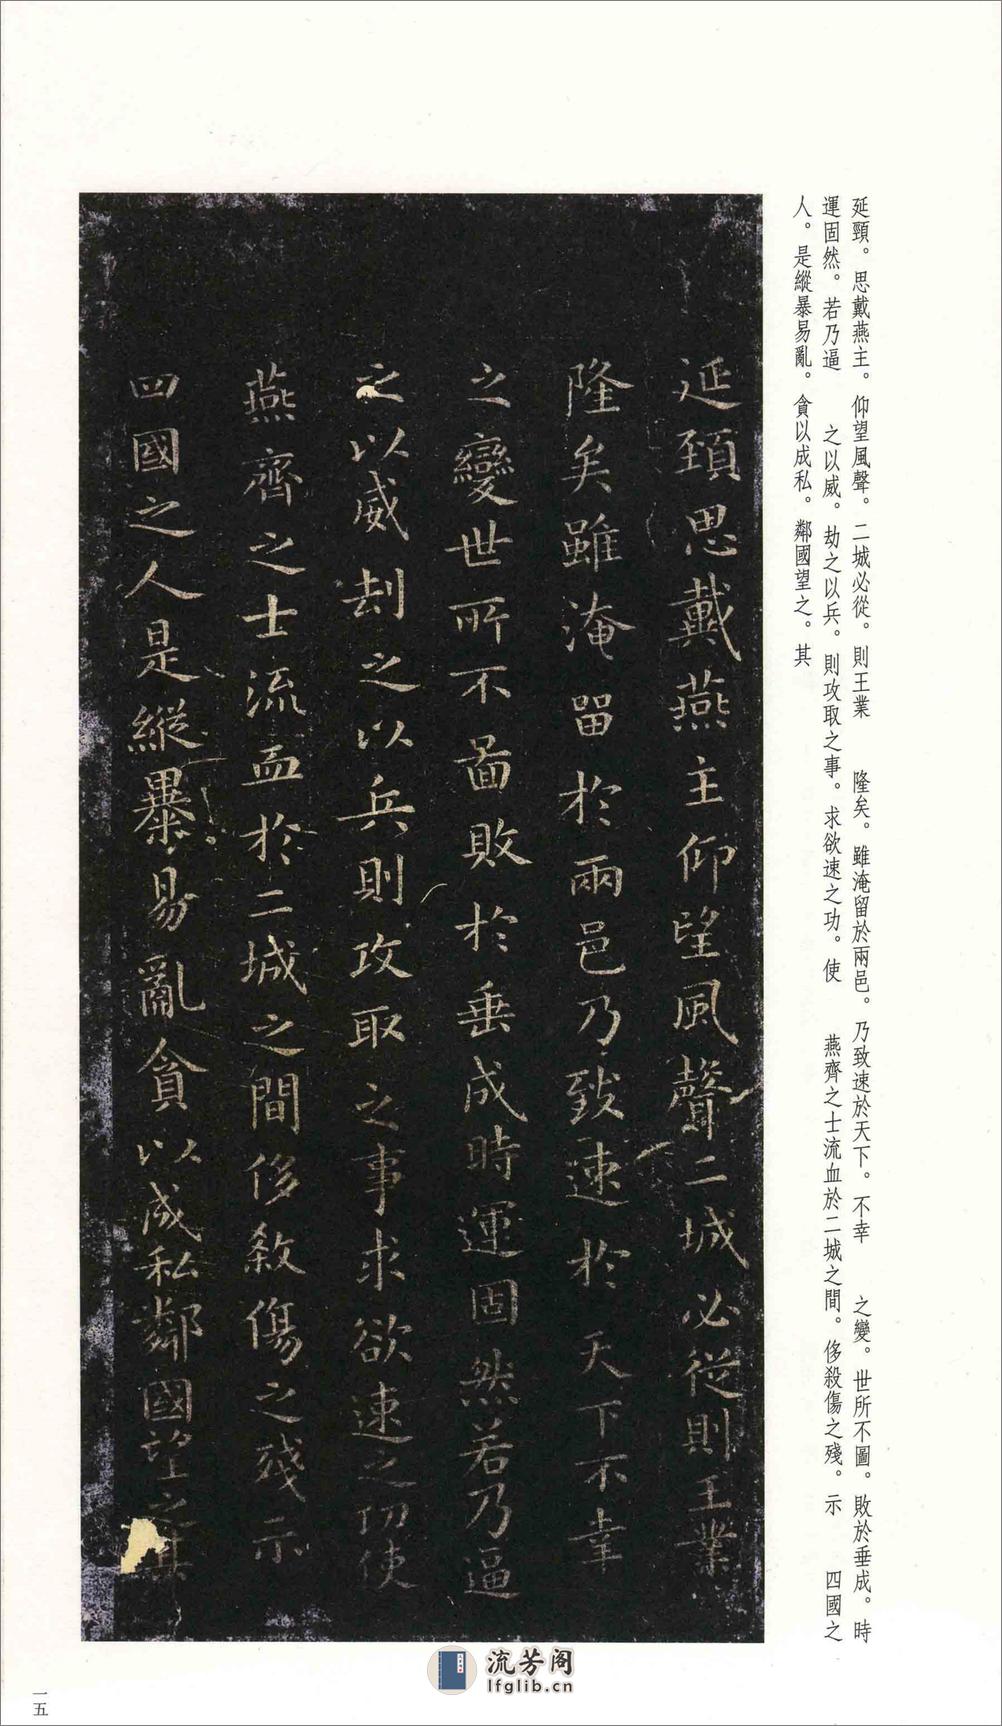 延頸。思戴燕主。仰望風聲。二城必從。則王業　隆矣。雖淹留於兩邑。乃致速於天下。不幸　之變。世所不圖。敗於垂成。時
運固然。若乃逼　之以威。劫之以兵。則攻取之事。求欲速之功。使　燕齊之士流血於二城之間。侈殺傷之殘。示　四國之
人。是縱暴易亂。貪以成私。鄰國望之。其
延頸思戴燕主仰望風聲二城必從則王業
隆矣雖淹留於兩邑乃致速於天下不幸
之變世所不圖敗於垂成時運固然若乃逼
之以威刦之以兵則攻取之事求欲速之功使
燕齊之士流血於二城之間侈殺傷之殘示
四國之人是縱暴易亂貪以成私鄰國望之其
流芳阁
lfglib.cn
一五